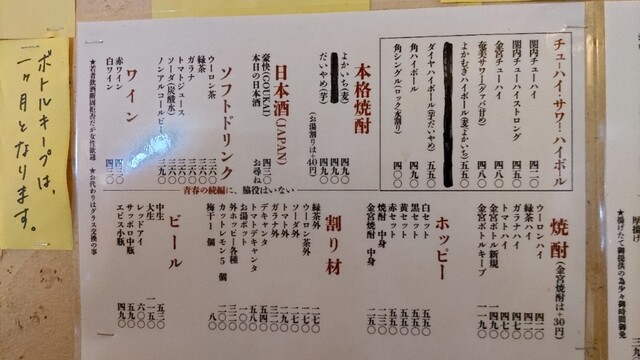 チューハイ・サワー・ハイボール
関内チューハイ 四二〇
関内チューハイストロング 五二〇
金宮チューハイ 四五〇
奄美サワー(タアバ甘め) 四八〇
よかむぎハイボール(麦よかいち) 五五〇
ダイヤハイボール(芋だいやめ) 五五〇
角ハイボール 四〇〇
角シングル(ロック・水割り) 四〇〇
本格焼酎
よかいち(麦) 四九〇
だいやめ(芋) 四九〇
(お湯割りは+40円)
日本酒(JAPAN)
豪快(GOUKAI) 四三〇
本日の日本酒 お尋ね
ソフトドリンク
ウーロン茶 三六〇
緑茶 三六〇
ガラナ 三六〇
トマトジュース 三六〇
ソーダ(炭酸水)
ノンアルコールビール 三九〇
ワイン
赤ワイン 四三〇
白ワイン 四三〇
★若者飲酒断固拒否だが女性歓迎
★お代わりはグラス交換の事
青春の続編に、脇役はいない
焼酎
(金宮焼酎は+30円)
ウーロンハイ 四二〇
ガラナハイ 四二〇
緑茶ハイ 四二〇
トマトハイ 四七〇
金宮ボトル新規
金宮ボトルキープ
ホッピー
白セット 五五〇
黒セット 五五〇
黄セット 五五〇
赤セット
焼酎 中身
金宮焼酎 中身
割り材
緑茶外
ウーロン茶外
ソーダ外
トマト外
ガラナ外
デキャンタ
トマトデキャンタ
お湯ポット
外ホッピー各種
カットレモン5個
梅干1個 八〇
ビール
中生
大生
レッドアイ
サッポロ中瓶
エビス小瓶 四九〇
ボトルキープは、
二ヶ月となります。
★揚げたて御提供の為少々御時間御免